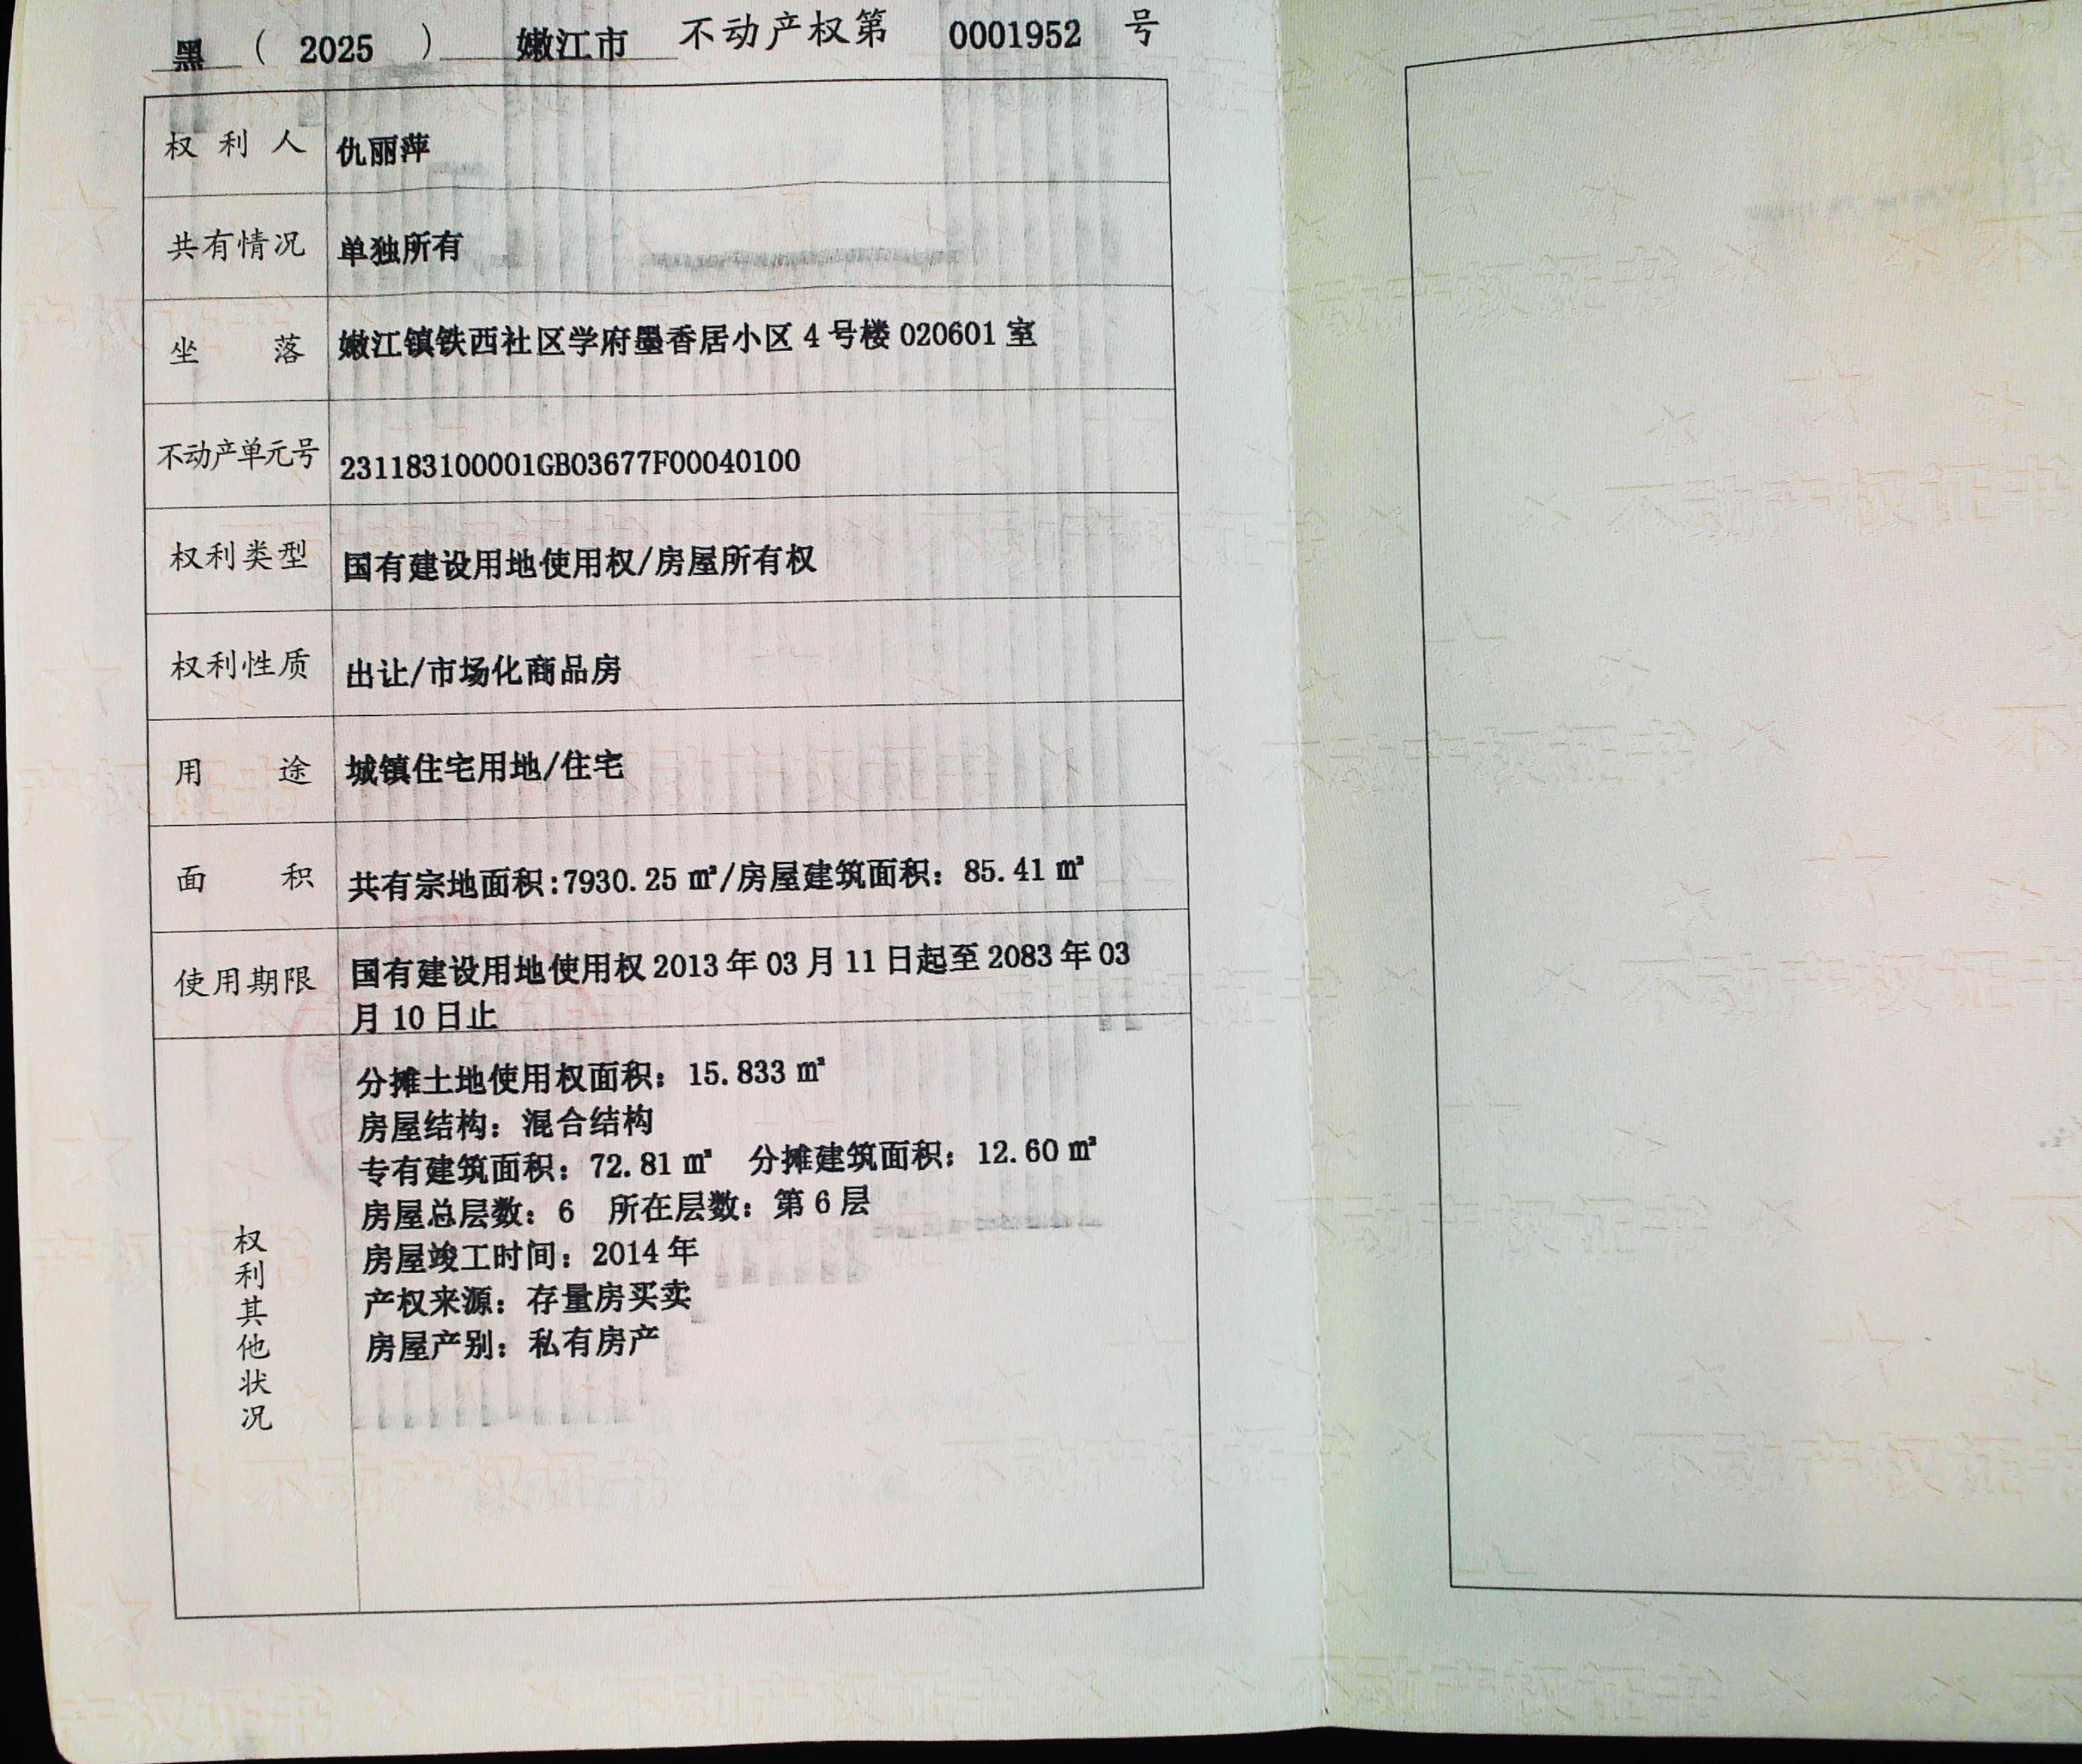 黑（2025）嫩江市 不动产权第 0001952 号
权利人 仇丽萍
共有情况 单独所有
坐落 嫩江镇铁西社区学府墨香居小区 4 号楼 020601 室
不动产单元号 231183100001GB03677F00040100
权利类型 国有建设用地使用权/房屋所有权
权利性质 出让/市场化商品房
用途 城镇住宅用地/住宅
面积 共有宗地面积:7930.25 ㎡/房屋建筑面积：85.41 ㎡
使用期限 国有建设用地使用权 2013 年 03 月 11 日起至 2083 年 03
月 10 日止
权利其他状况
分摊土地使用权面积：15.833 ㎡
房屋结构：混合结构
专有建筑面积：72.81 ㎡ 分摊建筑面积：12.60 ㎡
房屋总层数：6 所在层数：第 6 层
房屋竣工时间：2014 年
产权来源：存量房买卖
房屋产别：私有房产